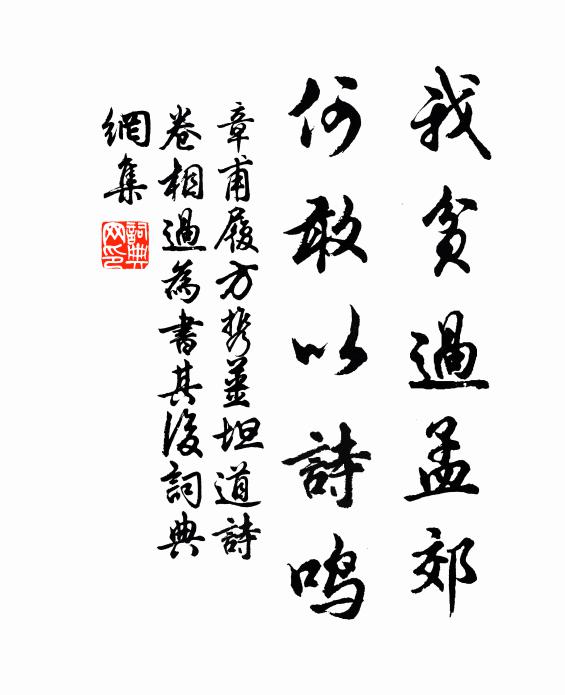 我貧過孟郊
何敢以詩鳴
章甫履方携薑坦道詩
卷相過為書其後詞典
網集
詞典網印